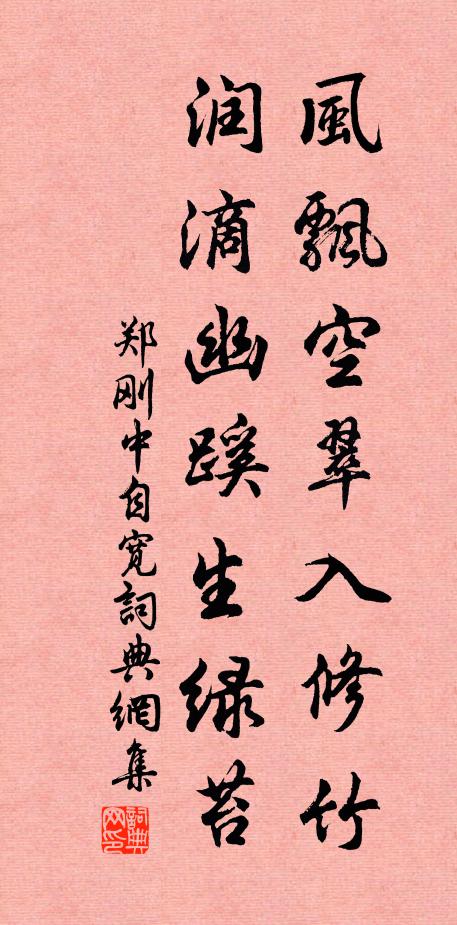 風飄空翠入修竹
润滴幽蹊生绿苔
郑刚中自宽詞典網集
詞典網印